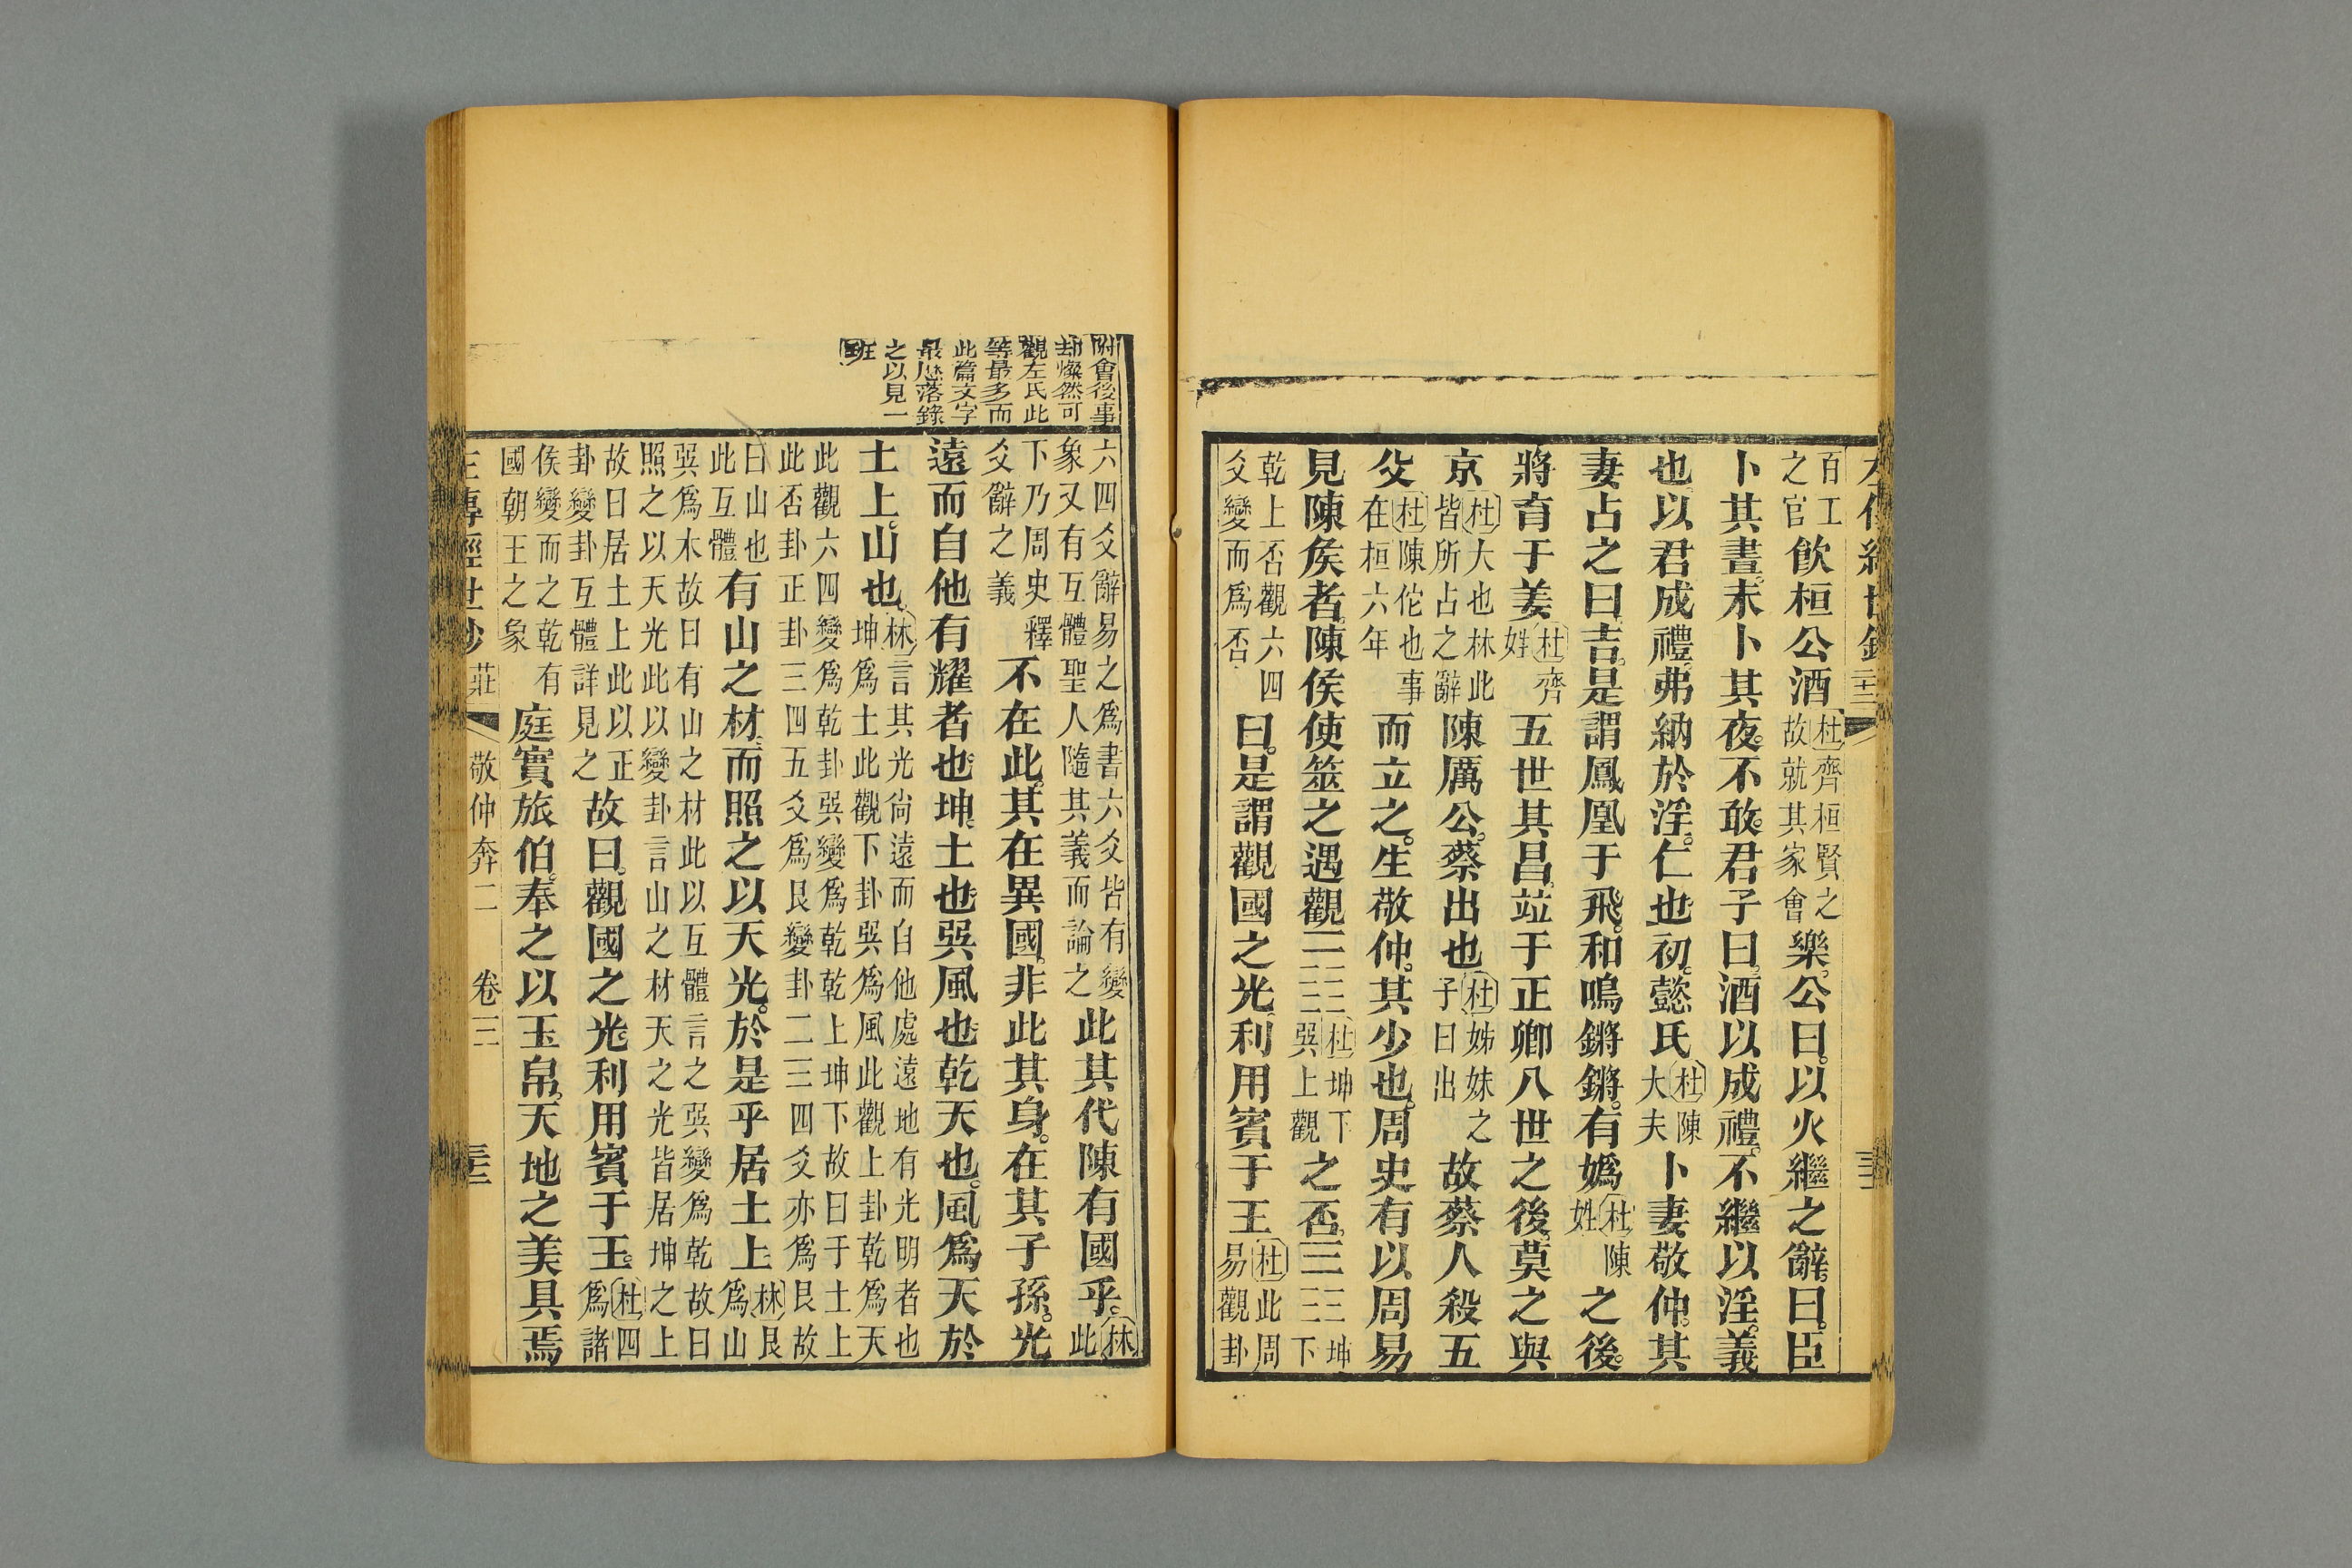 百工之官飲桓公酒杜齊桓賢之故就其家會樂公曰以火繼之辭曰臣
卜其晝未卜其夜不敢君子曰酒以成禮不繼以淫義
也以君成禮弗納於淫仁也初懿氏杜陳大夫卜妻敬仲其
妻占之曰吉是謂鳳凰于飛和鳴鏘鏘有嬀杜陳姓之後
將育于姜杜齊姓五世其昌竝于正卿八世之後莫之與
京杜大也林此皆所占之辭陳厲公蔡出也杜姊妹之子曰出故蔡人殺五
父杜陳佗也事在桓六年而立之生敬仲其少也周史有以周易
見陳侯者陳侯使筮之遇觀杜坤下巽上觀之否坤下
乾上否觀六四爻變而爲否曰是謂觀國之光利用賓于王杜此周易觀卦
附會後事
燦然可
觀左氏此
等最多而
此篇文字
最歷落錄
之以見一
班
六四爻辭易之爲書六爻皆有變象又有互體聖人隨其義而論之此其代陳有國乎林此
下乃周史釋爻辭之義不在此其在異國非此其身在其子孫光
遠而自他有耀者也坤土也巽風也乾天也風爲天於
土上山也林言其光尚遠而自他處遠地有光明者也坤爲土此觀下卦巽爲風此觀上卦乾爲天
此觀六四變爲乾卦巽變爲乾乾上坤下故曰于土上此否卦正卦三四五爻爲艮變卦二三四爻亦爲艮故
曰山也此互體有山之材而照之以天光於是乎居土上林艮爲山
巽爲木故曰有山之材此以互體言之巽變爲乾故曰照之以天光此以變卦言山之材天之光皆居坤之上
故曰居土上此以正卦變卦互體詳見之故曰觀國之光利用賓于王杜四爲諸
侯變而之乾有國朝王之象庭實旅伯奉之以玉帛天地之美具焉
莊 敬仲奔二 卷三